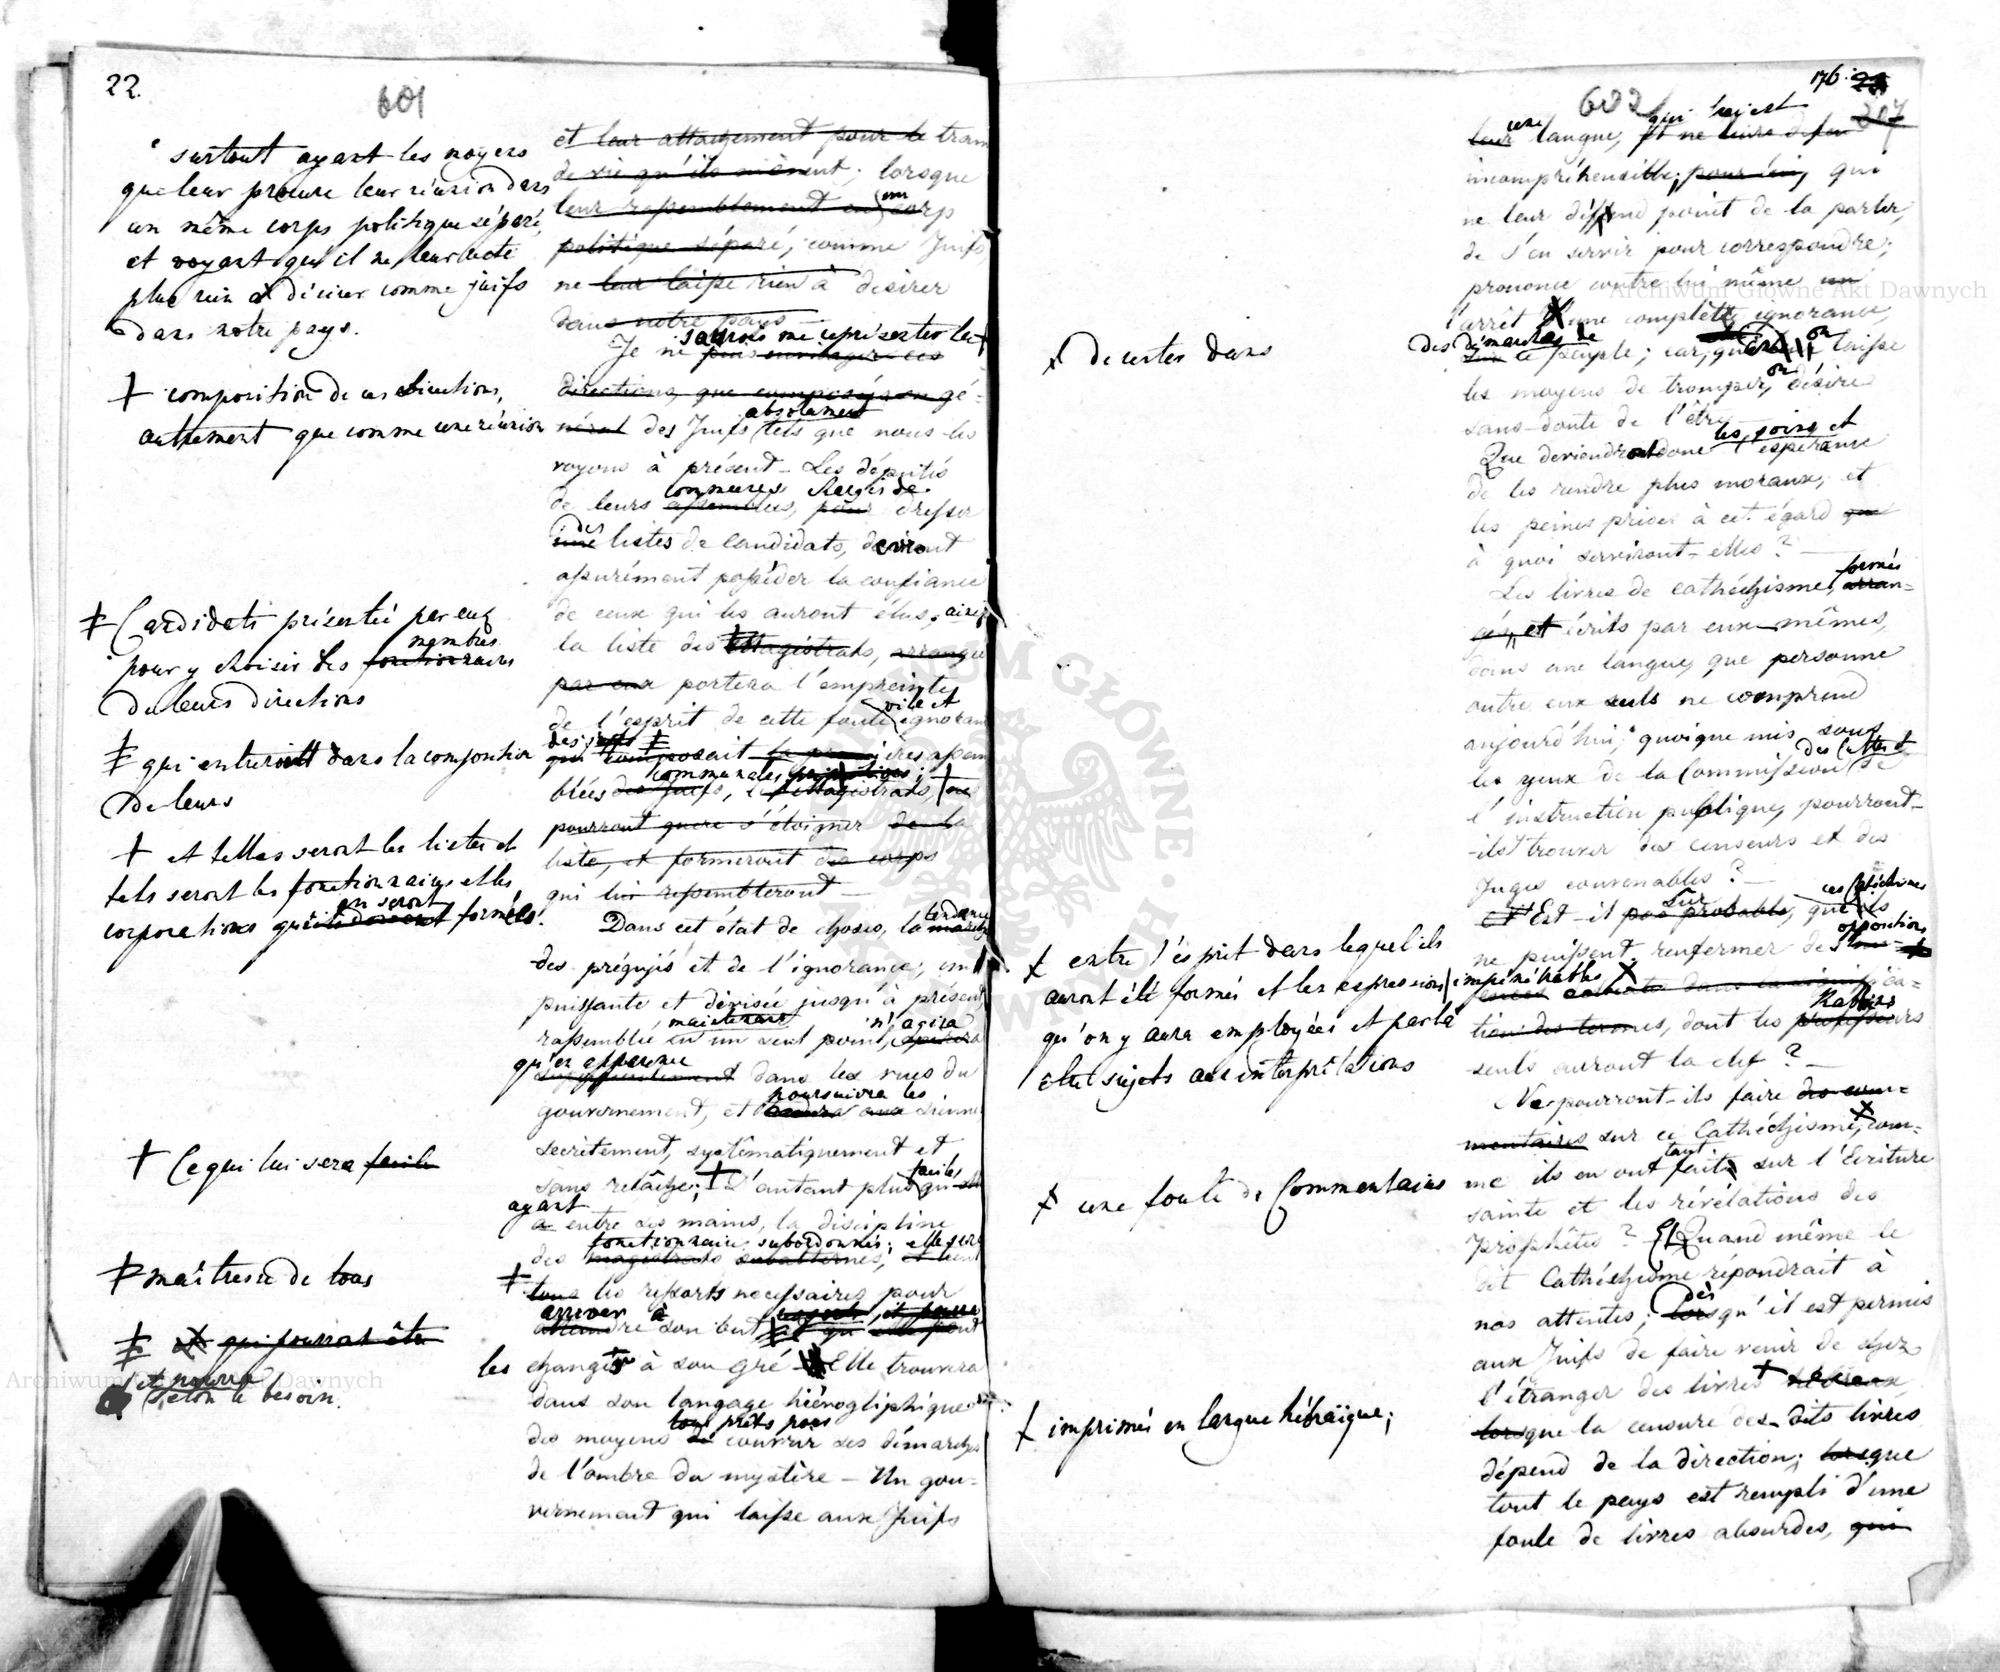 22.
601
surtout ayant les moyens
que leur procure leur réunion dans
un même corps politique séparé,
et voyant qu'il ne leur reste
plus rien à désirer comme juifs
dans notre pays.
‡ composition de ces directions,
autrement que comme une réunion
‡ Candidats présentés par eux
membres
pour y choisir les fonctionnaires
de leurs directions
‡ qui entreront dans la composition
de leurs
† et telles seront les listes et
tels seront les fonctionnaires et les
en seront
corporations qui formées.
† Ce qui lui sera facile
‡ maîtresse de tous
‡ et qui pourront être
et pourra
selon le besoin.
et leur attachement pour le train
de vie qu'ils mènent; lorsque
un
leur rassemblement en corps
politique séparé, comme Juifs
ne leur laisse rien à desirer
dans notre pays —
saurois me représenter la †
Je ne puis envisager ces
directions, que composées en gé-
absolument
néral des Juifs tels que nous les
voyons à présent — Les députés
communes chargés de
de leurs assemblées, pour dresser
des
une listes de Candidats, devront
assurément posséder la confiance
de ceux qui les auront élus, ainsi
la liste des Magistrats, arrangée
par eux portera l'empreinte
vile et
de l'esprit de cette foule ignorante
des juifs ‡
qui composait la premières assem
communales primitives;
blées des Juifs, les Magistrats, † ne
pourront guere s'éloigner de la
liste, et formeront des corps
qui lui ressembleront —
tendance
Dans cet état de choses, la marche
des préjugés et de l'ignorance, im
puissante et divisée jusqu'à présent
maintenant n'agira
rassemblée en un seul point, opérera
qu'en apparence
dans les vues du
poursuivra les
gouvernement, et tendra aux siennes
secrètement, systèmatiquement et
faciles
sans relâche; † d'autant plus qu'elle
ayant
a entre ses mains, la discipline
fonctionnaires subordonnés; elle sera
des magistrats subalternes, et tient
‡ tous les ressorts necessaires pour
arriver à
atteindre son but et qu'elle peut
les changer à son gré Elle trouvera
dans son langage hiérogliphique
tous prêts pour
des moyens de couvrir ses démarches
de l'ombre du mystère — Un gou-
vernement qui laisse aux Juifs
176. 23
602
307
une qui leur est
leur langue,
incompréhensible; pour lui, qui
ne leur défend point de la parler,
de s'en servir pour correspondre;
prononce contre lui même un
l'arrêt d'une complette ignorance,
‡ de certes dans
des démarches de
ce peuple; car, on laisse
on
les moyens de tromper, désire
sans doute de l'être
les soins et
Que deviendront donc l'espérance
de les rendre plus moraux, et
les peines prises à cet égard que
à quoi serviront-elles? —
formés
Les livres de cathéchisme, arran-
gés, et écrits par eux-mêmes,
dans une langue, que personne
autre eux seuls ne comprend
aujourd'hui, quoique mis sous
des Cultes et
les yeux de la Commission de
l'instruction publique, pourront-
ils trouver des censeurs et des
Juges convenables? —
ces Catéchismes
sûr
Est-il pas probable, que ils
oppositions
ne puissent renfermer des
‡ entre l'ésprit dans lequel ils
auront été formés et les expressions impénétrables
qu'on y aura employées et par là
et sujets aux interprétations
Rabbins
tion des termes, dont les professeurs
seuls auront la clef? —
Ne pourront-ils faire des com-
mentaires sur ce Cathéchisme, com-
tant
me ils en ont faits sur l'Ecriture
‡ une foule de Commentaires
sainte et les révélations des
Prophêtes? Et Quand même le
dit Cathéchisme répondrait à
dès
nos attentes; lorsqu'il est permis
aux Juifs de faire venir de chez
l'étranger des livres † hébreux,
‡ imprimés en langue hébraïque;
lorsque la censure des-dits livres
dépend de la direction; lorsque
tout le pays est rempli d'une
foule de livres absurdes, qui
Archiwum Główne Akt Dawnych
Archiwum Główne Akt Dawnych